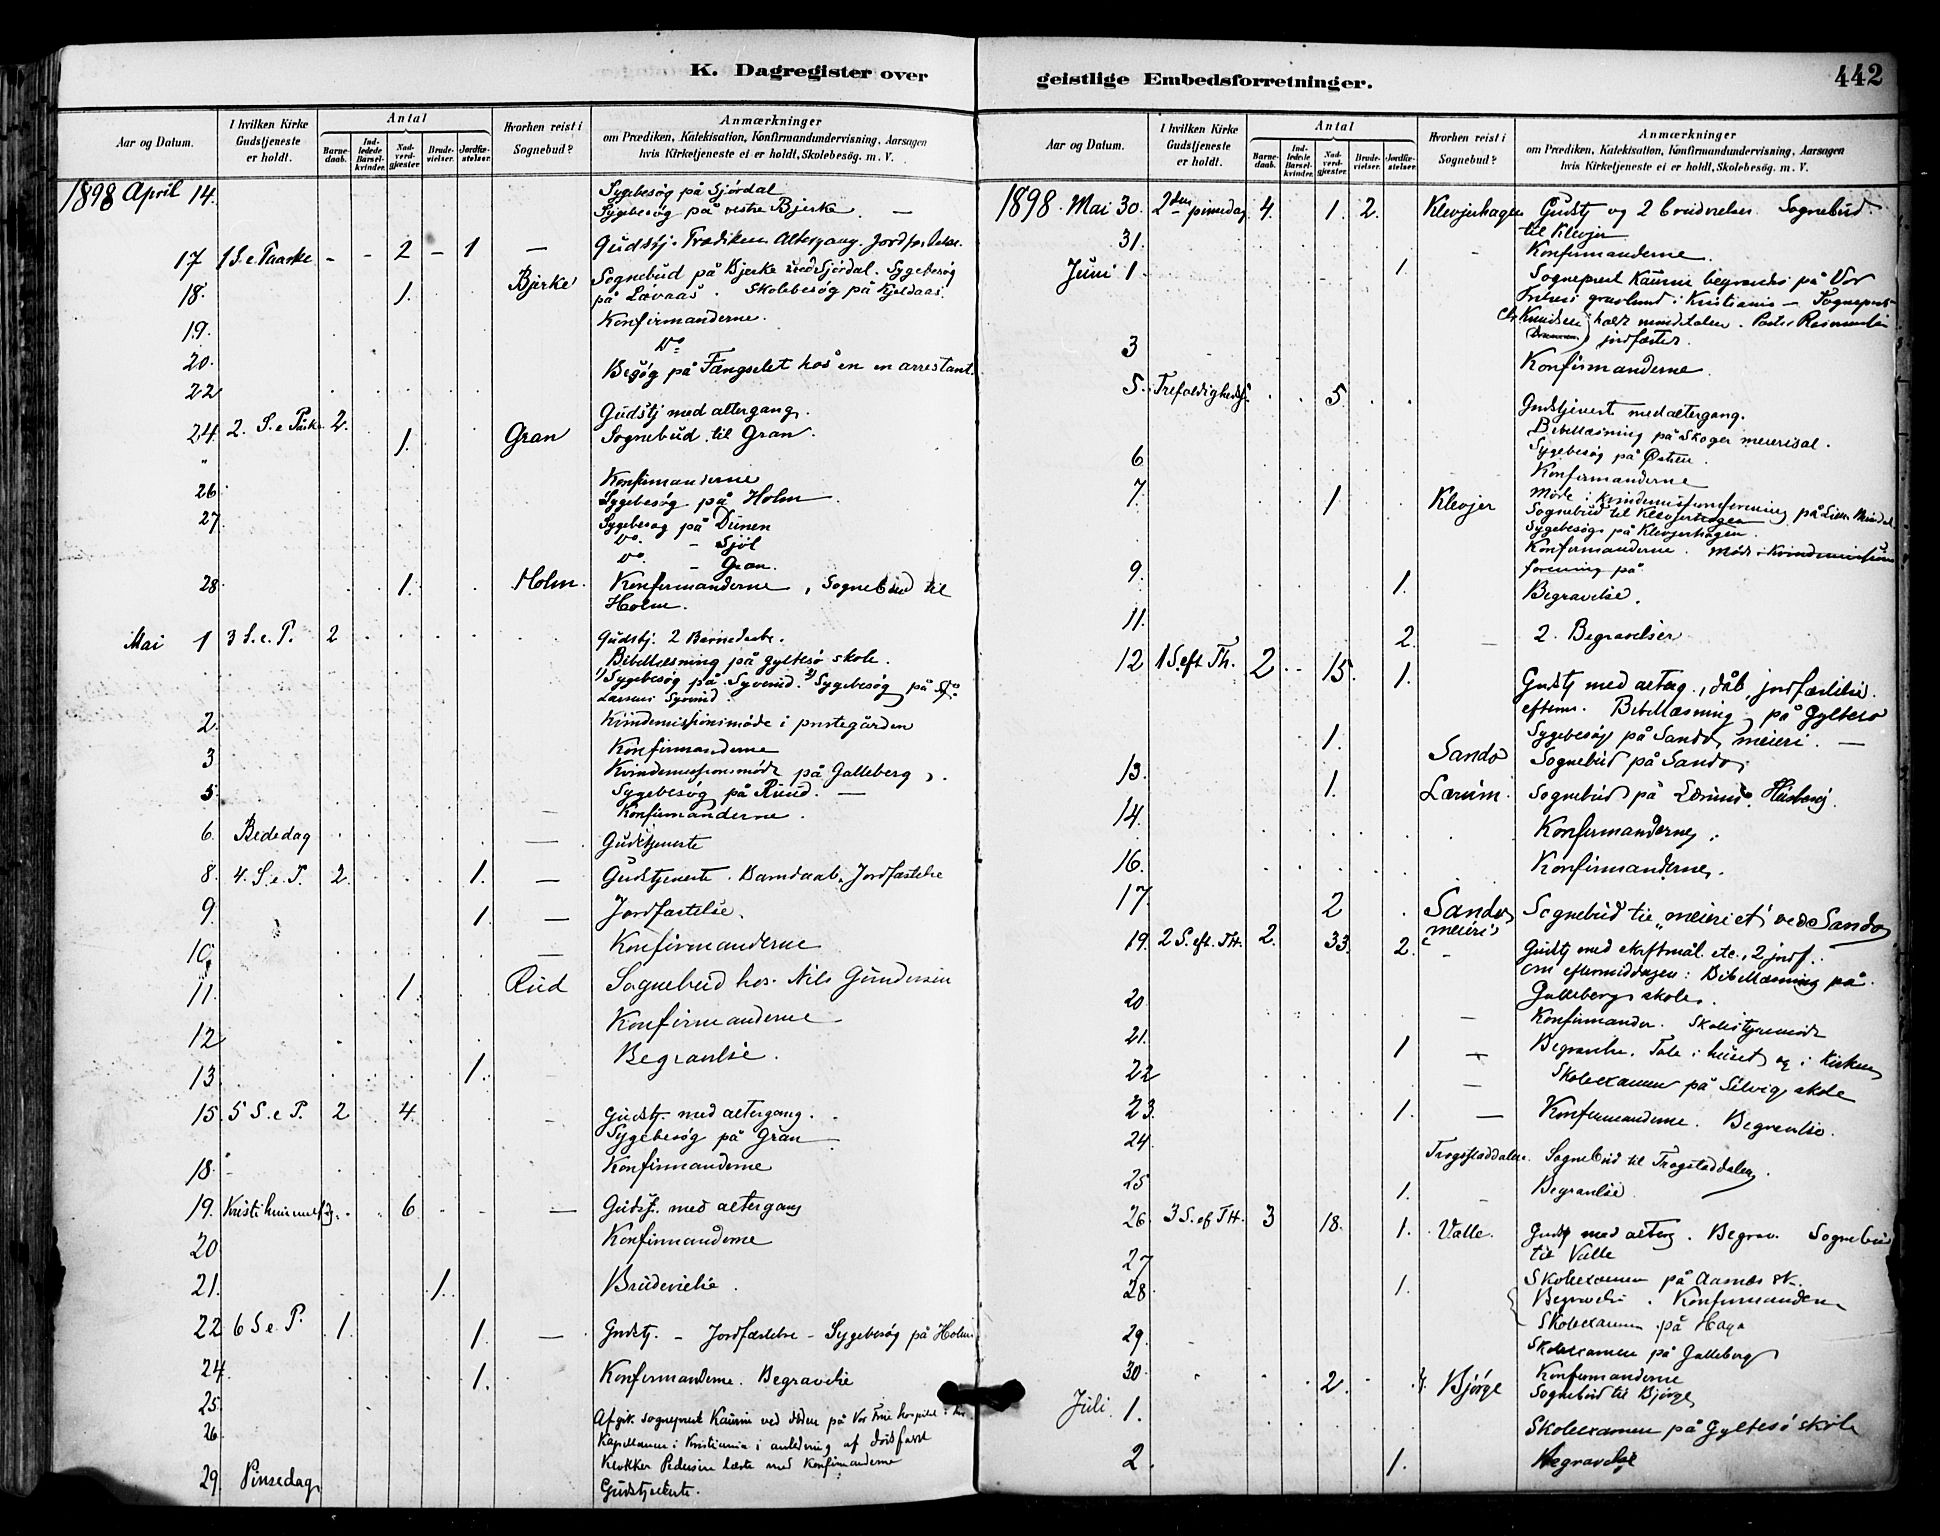 K. Dagregister over
Aar og Datum.
I hvilken Kirke Gudstjeneste er holdt.
Antal
Barnedaab.
Indledede Barselkvinder.
Nadverdgjester.
Brudevielser.
Jordfæstelser.
Hvorhen reist i Sognebud?
Anmærkninger
om Prædiken, Katekisation, Konfirmandundervisning, Aarsagen
hvis Kirketjeneste ei er holdt, Skolebesøg. m. V.
1898 April 14. Sygebesøg på Sjördal
Sygebesøg på vestre Bjerke. —
17 1 S. e. Paaske - - 2 - 1 — Gudstj. Prædiken Altergang. Jordfæstelse.
18. 1. Bjerke Sognebud på Bjerke Sjördal. Sygebesøg
på Løvaas. Skolebesøg på Kjeldaas.
19. Konfirmanderne.
20. Do
22 Besøg på Fængselet hos en en arrestant.
24. 2. S. e Påske 2. Gudstj med altergang.
" 1. Gran Sognebud til Gran.
26 Konfirmanderne
Sygebesøg på Holm
27 Sygebesøg på Dunen
Do - Sjöl
Do - Gran.
28 1. Holm. Konfirmanderne, Sognebud til
Holm.
Mai 1 3 S. e. P. 2 Gudstj. 2 Barnedaabe.
Bibellæsning på Gyltesø skole.
1) Sygebesøg på Syverud. 2) Sygebesøg på
Syverud.
2. Kvindemissionsmøde i prestegården
3 Konfirmanderne
Kvindemissionsmøde på Galleberg.
5 Sygebesøg på Ruud. —
Konfirmanderne.
6. Bededag — Gudstjeneste
8. 4. S. e. P. 2. 1. — Gudstjeneste. Barndaab. Jordfæstelse
9. 1. — Jordfæstelse.
10. — Konfirmanderne
11. 1. Rud Sognebud hos Nils Gundersen
12 Konfirmanderne
13 1. Begravelse.
15. 5 S. e P. 2 4. Gudstj med altergang.
Sygebesøg på Gran
18. Konfirmanderne
19. Kristi himmelf dg. 6. — Gudstj. med altergang
20 Konfirmanderne
21. 1. Brudevielse.
22 6 S. e P. 1. 1. — Gudstj. - Jordfæstelse - Sygebesøg på Holm
24 1. Konfirmanderne. Begravelse
25. Afgik sogneprest Kaurin ved døden på Vor Frue hospital i Kr.
26 Kapellanen i Kristiania i anledning af dødsfald
Klokker Pedersen læste med Konfirmanderne
29 Pinsedag Gudstjeneste.
geistlige Embedsforretninger.
442
Aar og Datum.
I hvilken Kirke Gudstjeneste er holdt.
Antal
Barnedaab.
Indledede Barselkvinder.
Nadverdgjester.
Brudevielser.
Jordfæstelser.
Hvorhen reist i Sognebud?
Anmærkninger
om Prædiken, Katekisation, Konfirmandundervisning, Aarsagen
hvis Kirketjeneste ei er holdt, Skolebesøg. m. V.
1898. Mai 30. 2den pinsedag 4. 1. 2. Klevjerhagen Gudstj og 2 brudvielser. Sognebud
til Klevjer
31. Konfirmanderne.
Juni 1. 1. Sogneprest Kaurin begravedes på Vor
Frelsers gravlund i Kristiania - Sogneprest
Chr Knudsen holdt mindetalen. Pastor Rasmussen
jordfæstet.
3 Konfirmanderne.
5. Trefoldighedss. 5 Gudstjenest med altergang.
Bibellæsning på Skoger meierisal.
6 Sygebesøg på Østern.
Konfirmanderne
7. 1 Klevjer Møde i kvindemissionsforening på
Sognebud til Klevjerhagen
Sygebesøg på Klevjerhagen.
9. 1. Konfirmanderne. Møde i Kvindemissions
forening på
11. Begravelse.
2. — 2. Begravelser
12 1 S. eft Th. 2 15. 1. Gudstj med alterg., dåb, jordfæstelse.
efterm. Bibellæsning på Gyltesø
1. Sygebesøg på Sandø meieri. —
13. Sandø Sognebud på Sandø.
1. Lærum. Sognebud på Lærum.
14. Konfirmanderne.
16. Konfirmanderne.
17 2 Sandø meieri Sognebud til "meieriet" ved Sandø
19. 2 S. eft. TH. 2. 33. 2. - Gudstj med skriftmål etc., 2 jordf.
om eftermiddagen: Bibellæsning på
20 Galleberg skole.
— Konfirmander. Skolestyremøde
21. 1 — Begravelse. Tale i huset og i Kirken
22 — Skoleexamen på Selvig skole
23. 1. — Konfirmanderne. Begravelse.
24. Trogstaddalen. Sognebud til Trogstaddalen.
25 1. Begravelse.
26 3 S. ef TH. 3 18. 1. Valle. Gudstj med alterg. Begrav. Sognebud
27 til Valle
28 1. Skoleexamen på Aarnæs sk.
Begravelse. Konfirmanderne
29. Skoleexamen på Haga
Skoleexamen på Galleberg
30. 2. Bjørge Konfirmanderne
Sognebud til Bjørge
Juli 1. Skoleexamen på Gyltesö skole
2. 1. Begravelse